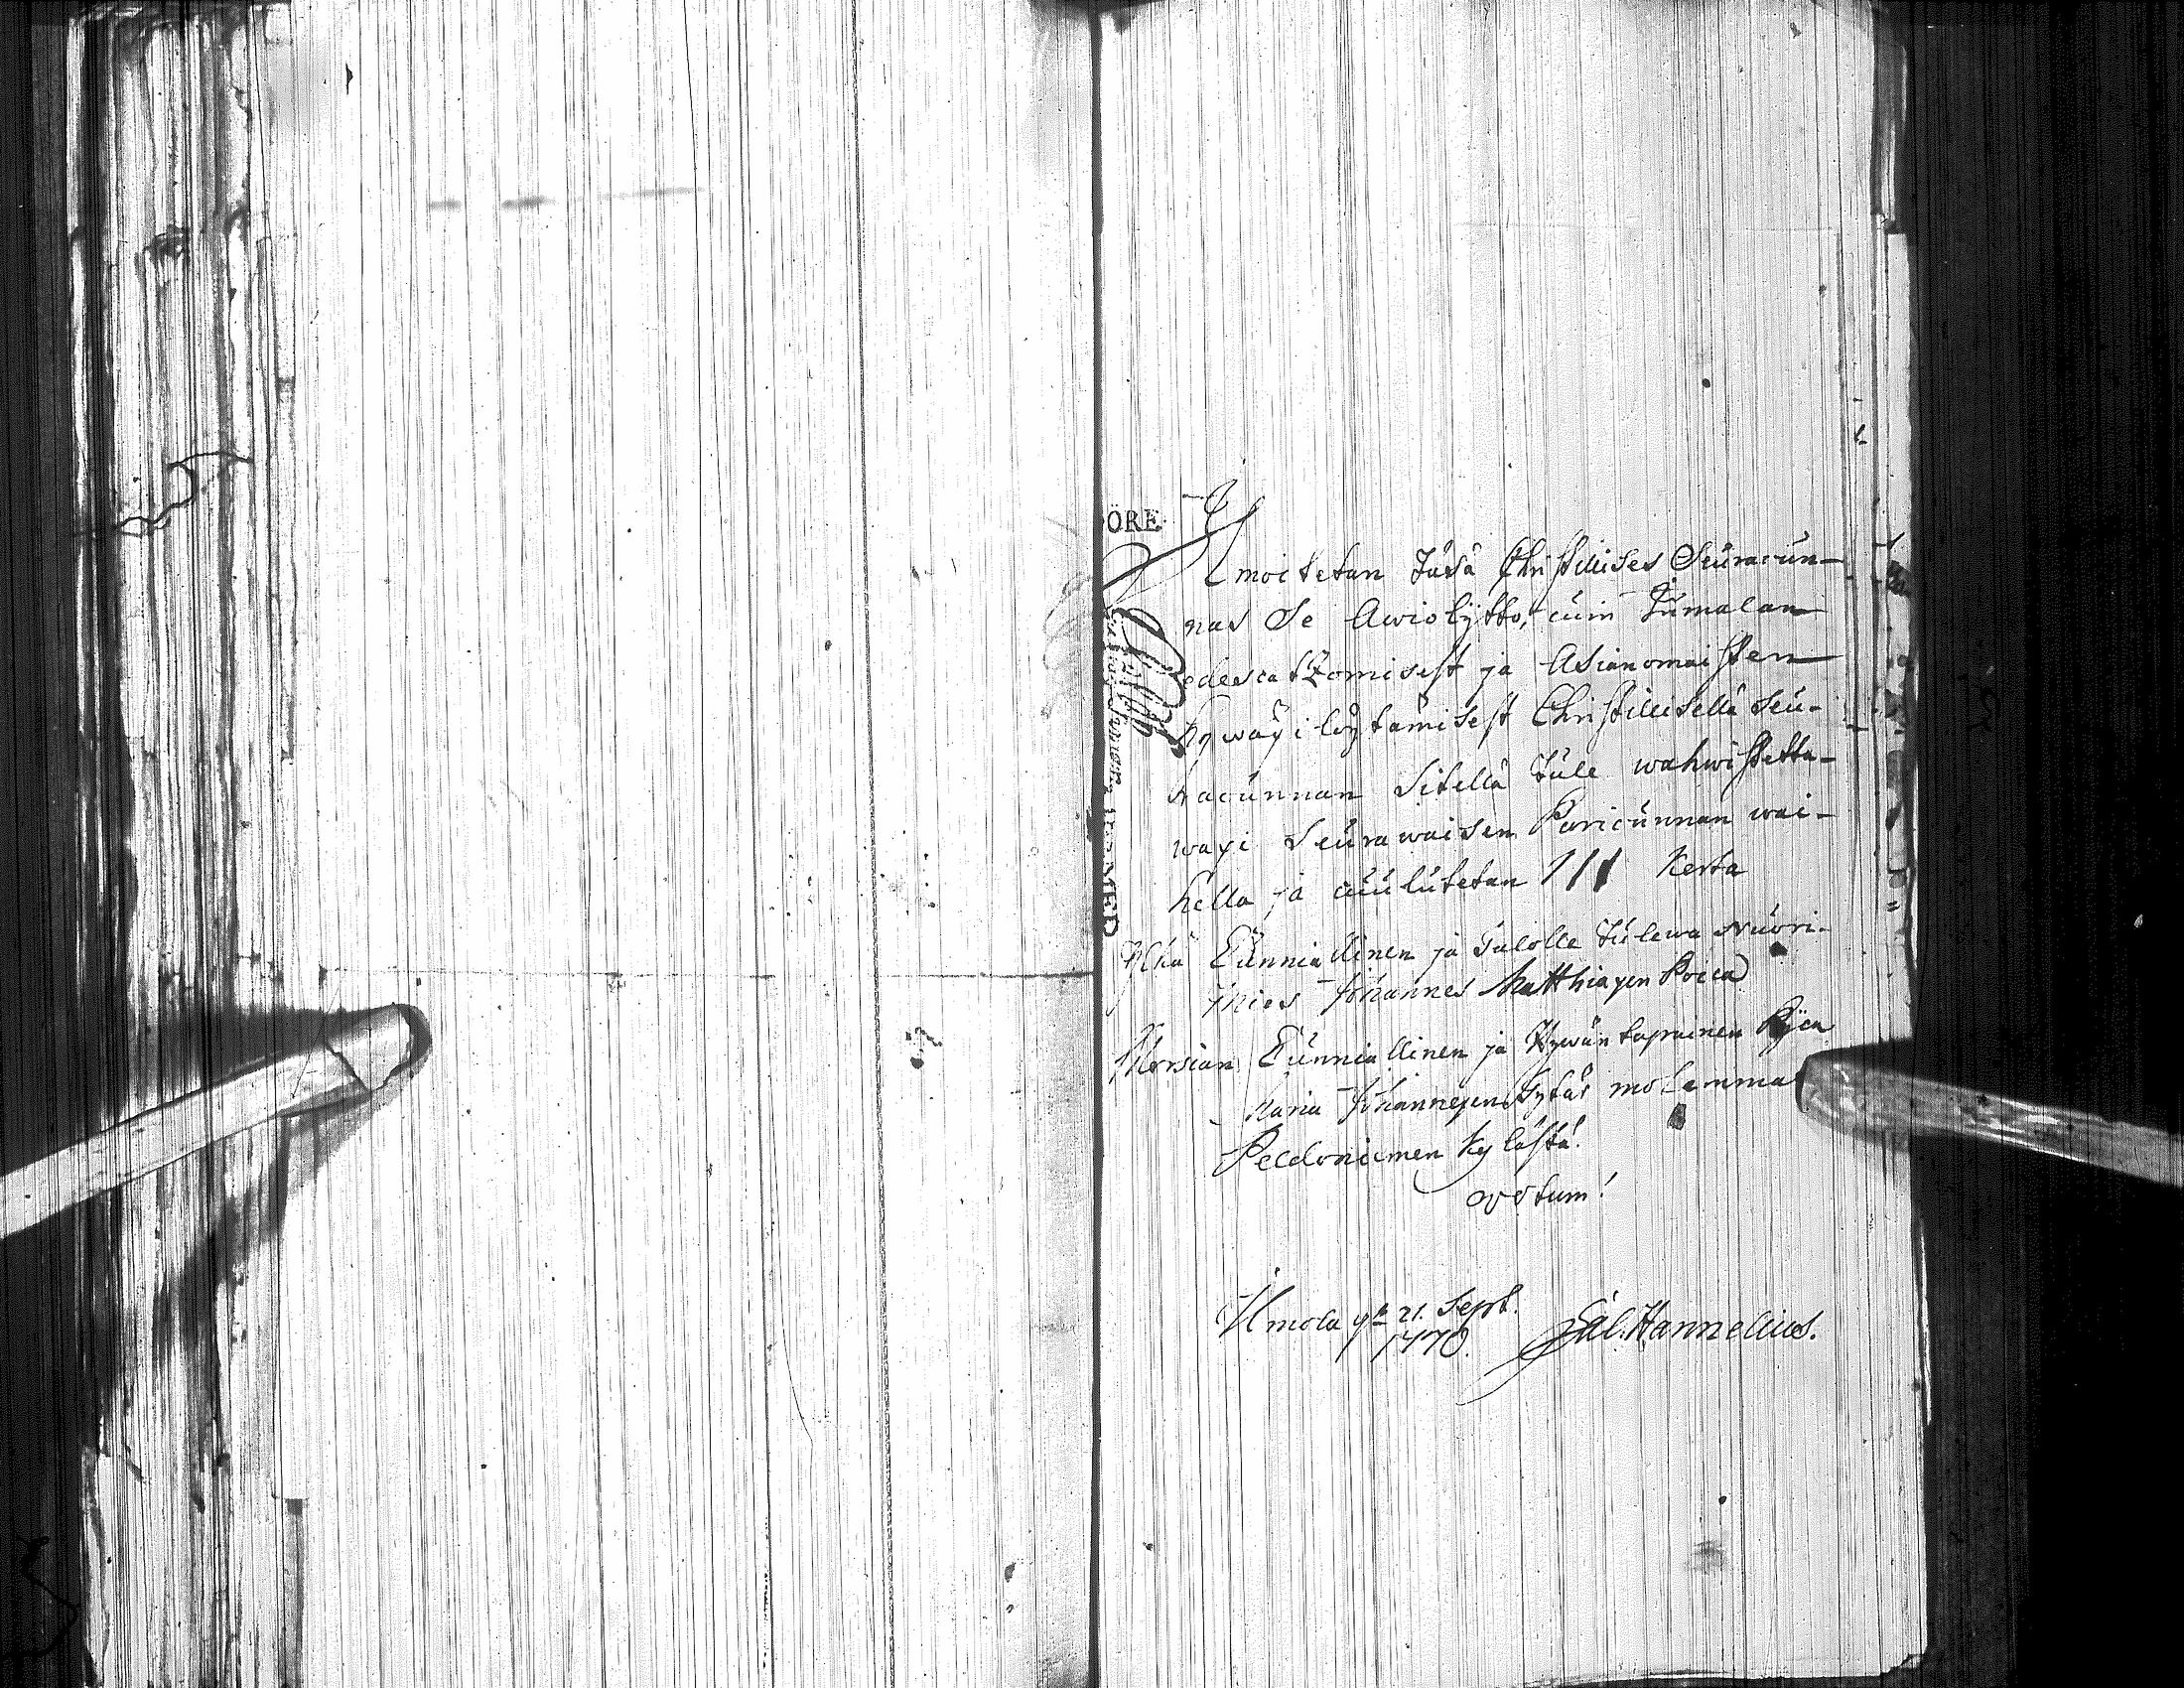 ÖRE
Ilmoitetan Täsä Christillises Seuracun-
nas Se Awiolijtto, cuin Jumalan
edescatzomisest ja Asianomaisten
hywäxi löytämisest Christillisellä Seu-
racunnan Sitellä Tule wahwistetta-
waxi Seurawaisen Paricunnan wai-
hella ja cuulutetan III Kerta
Ylkä Cunniallinen ja Talolle Tulewa Nuori-
Mies Johannes Matthiaxen Poica
Morsian Cunniallinen ja Hywän tapainen Pijca
Maria Johannexen tytär molemmat
Peldoniemen Kylästä.
votum!
Ilmola 21. Sept.
1770. Sal. Hannelius.
MED